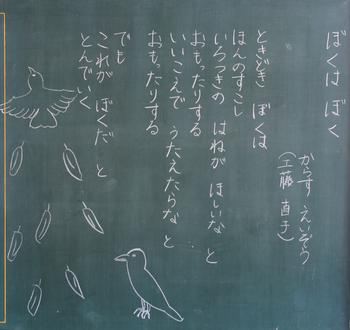 ぼくは ぼく
からす えいぞう
(工藤 直子)
ときどき ぼくは
ほんのすこし
いろつきの はねが ほしいな と
おもったりする
いいこえで うたえたらな と
おもったりする
でも
これが ぼくだ と
とんでいく